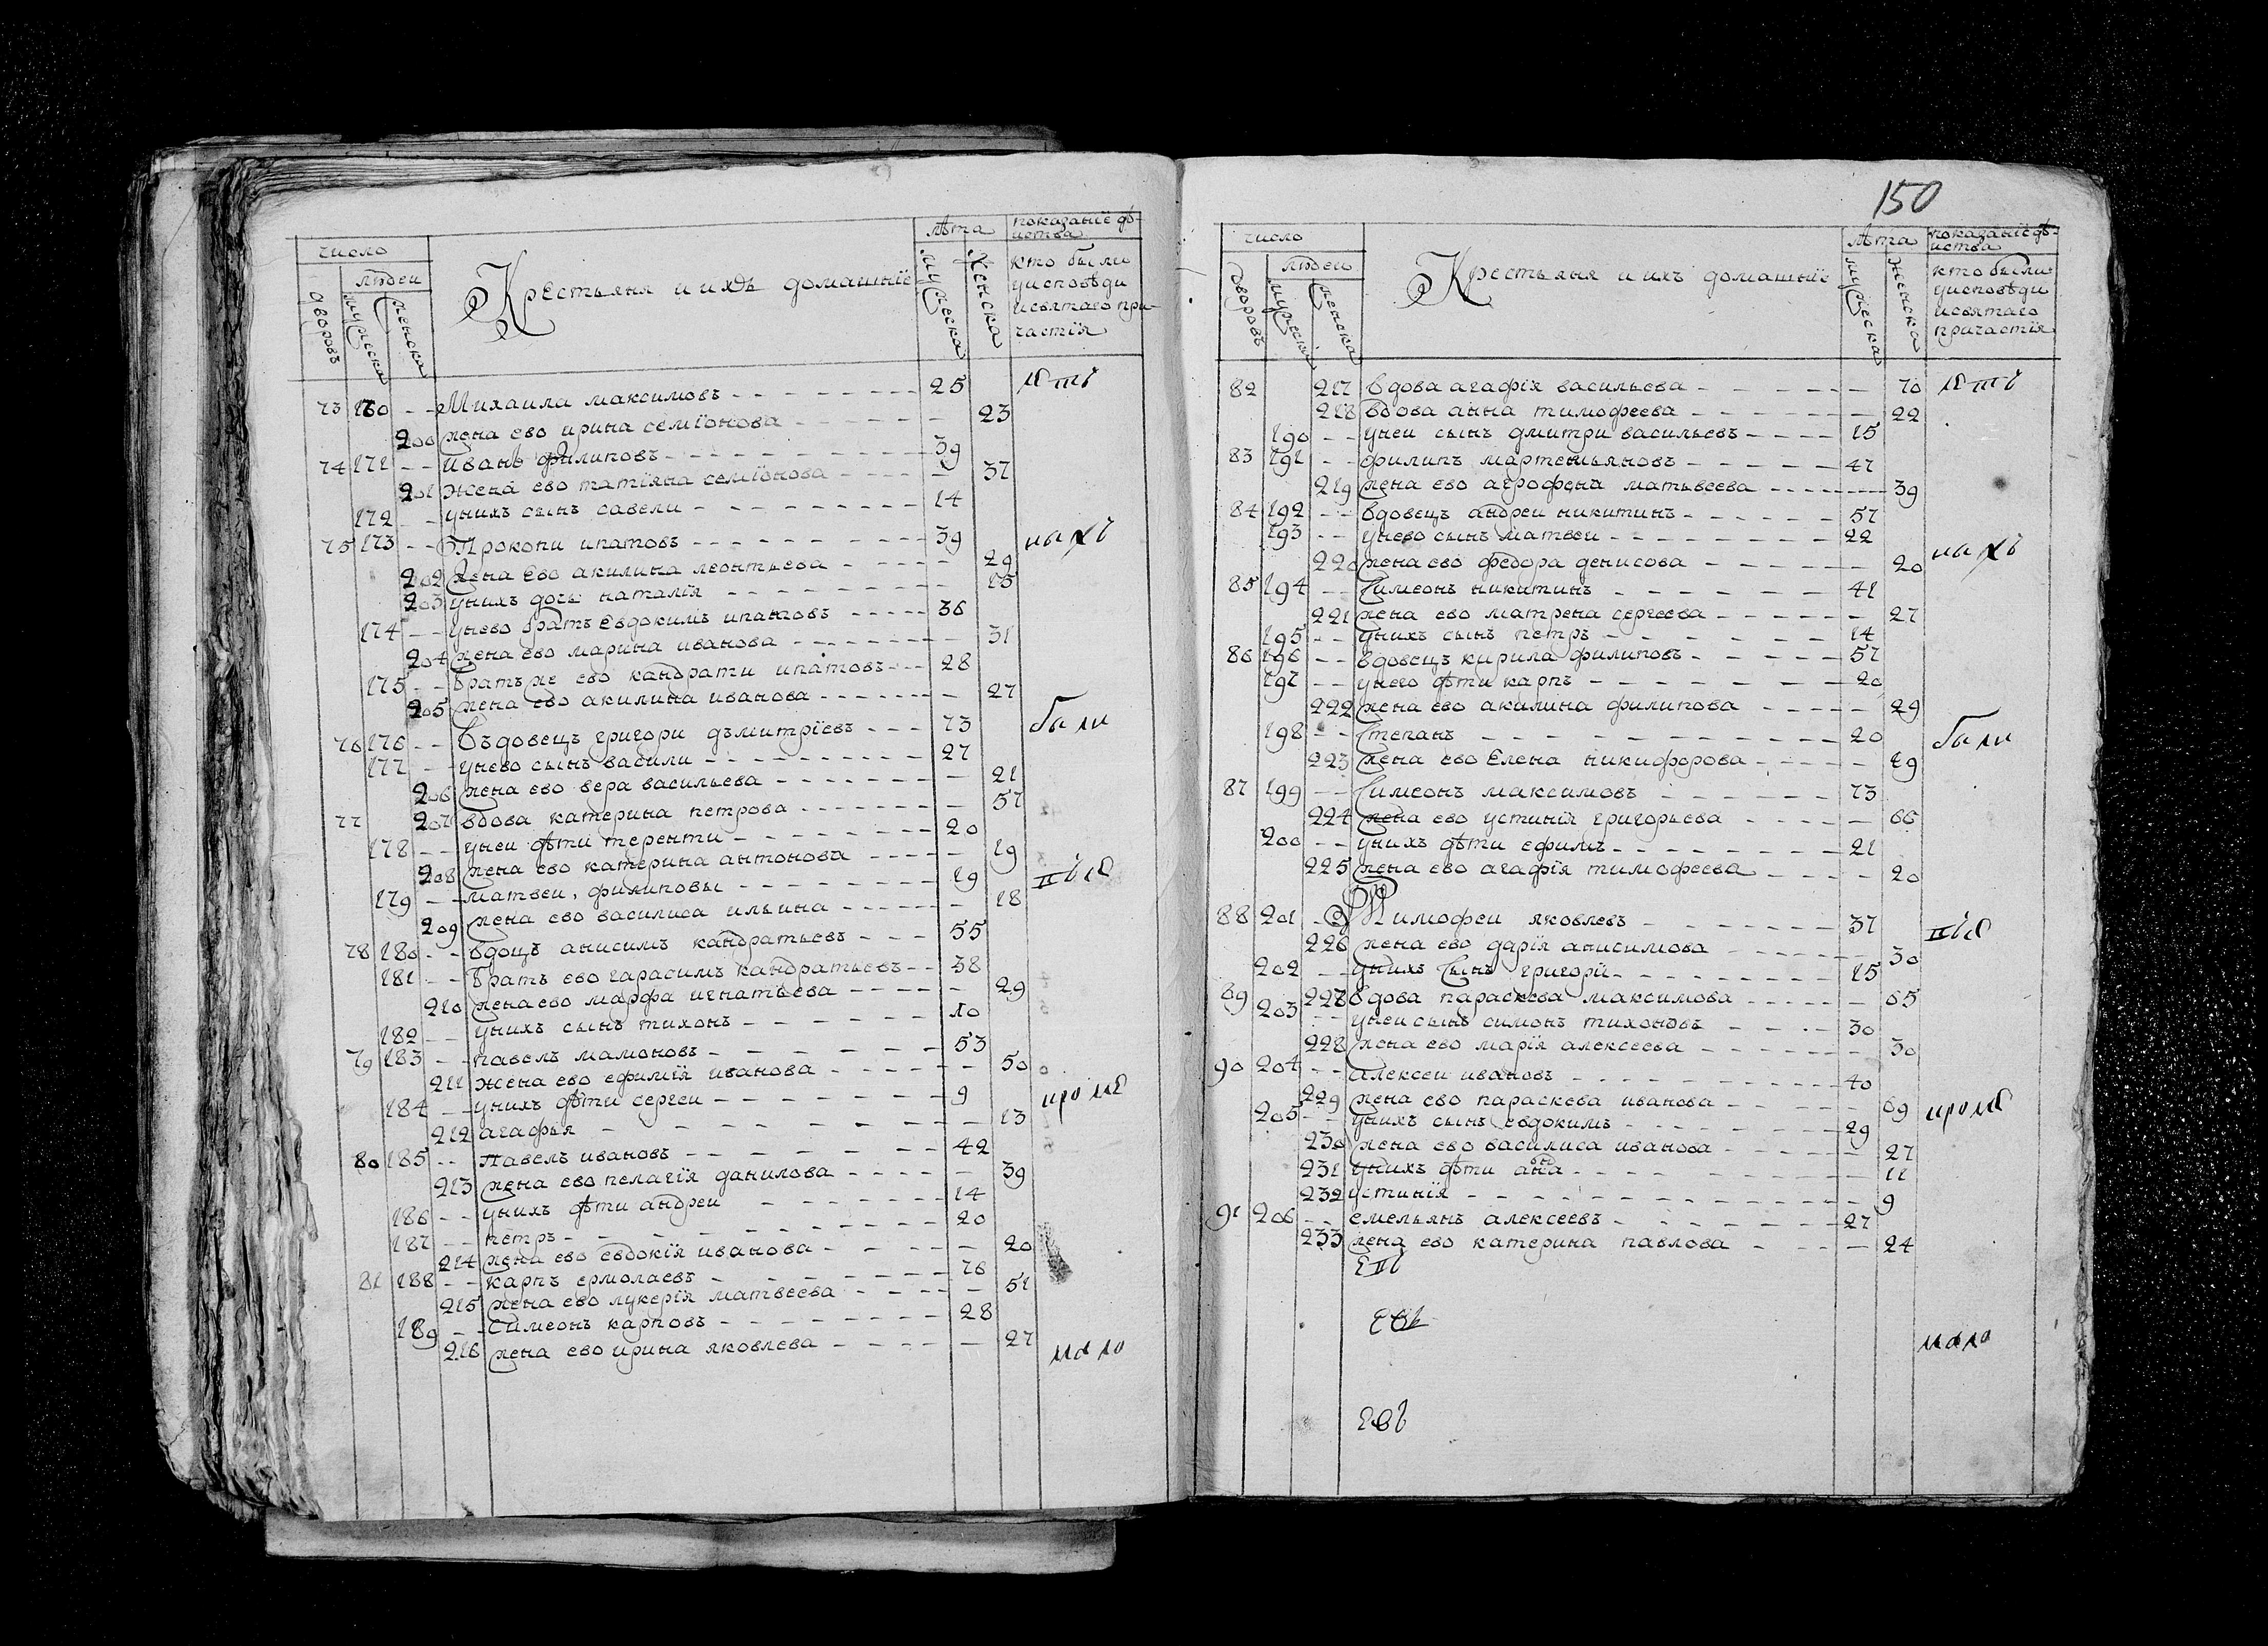 число
людеи
дворовъ
мужеска
женска
Крестьяня и ихъ домашниѣ
лѣта
мужеска
женска
показаниѣ дѣ-
иства
кто были
уисповѣди
исвятаго при-
частїя
73 170 -- Михаила максимовъ 25
200 жена ево ирина семїонова 23
74 171 -- иванъ филиповъ 39
201 Жена ево татїяна семїонова 37
172 -- унихъ сынъ савели 14
75 173 -- Прокопи ипатовъ 39
202 жена Ево акилина леонтьева 29
203 унихъ дочь наталїя 15
174 -- унево братъ Евдокимъ ипатовъ 36
204 жена ево марина иванова 31
175 -- братъ же ево кандрати ипатовъ 28
205 жена ево акилина иванова 27
76 176 -- Въдовецъ григори дъмитрїевъ 73
177 -- унево сынъ васили 27
206 жена ево вера васильева 21
77 207 вдова катерина петрова 57
178 -- унеи дѣти теренти 20
208 жена ево катерина антонова 19
179 -- матвеи, филиповы 19
209 жена ево василиса ильина 18
78 180 -- вдоцъ анисимъ кандратьевъ 55
181 -- братъ ево гарасимъ кандратьевъ 38
210 жена ево марфа игнатьева 29
182 -- унихъ сынъ тихонъ 10
79 183 -- павелъ мамоновъ 53
211 жена ево ефимїя иванова 50
184 -- унихъ дѣти сергеи 9
212 агафья 13
80 185 -- Павелъ ивановъ 42
213 жена ево пелагїя данилова 39
186 -- унихъ дѣти андреи 14
187 -- петръ 20
214 жена ево евдокїя иванова 20
81 188 -- карпъ ермолаевъ 76
215 жена ево лукерїя матвеева 51
189 -- симеонъ карповъ 28
216 жена ево ирина яковлева 27
были
мало
150
число
людеи
дворовъ
мужеска
женска
Крестьяня и ихъ домашниѣ
лѣта
мужеска
женска
показаниѣ дѣ-
иства
кто были
уисповѣди
исвятаго
причастїя
82 217 вдова агафїя васильева 70
218 вдова анна тимофеева 22
190 -- унеи сынъ дмитри васильевъ 15
83 191 -- филипъ мартемьяновъ 47
219 жена ево агрофена матьвеева 39
84 192 -- вдовецъ андреи никитинъ 57
193 -- унево сынъ матвеи 22
220 жена ево федора денисова 20
85 194 -- Симеонъ никитинъ 41
221 жена ево матрена сергеева 27
195 -- унихъ сынъ петръ 14
86 196 -- вдовецъ кирила филиповъ 57
197 -- унего дѣти карпъ 20
222 жена ево акилина филипова 29
198 -- Степанъ 20
223 жена ево Елена никифорова 19
87 199 -- Симеонъ максимовъ 73
224 жена ево устинїя григорьева 66
200 -- унихъ дѣти ефимъ 21
225 жена ево агафїя тимофеева 20
88 201 - Тимофеи яковлевъ 37
226 жена ево дарїя анисимова 30
202 -- унихъ Сынъ григорїи 15
89 227 вдова параскева максимова 65
203 -- унеи сынъ симонъ тихоновъ 30
228 жена ево марїя алексеева 30
90 204 -- алексеи ивановъ 40
229 жена ево параскева иванова 69
205 -- унихъ сынъ евдокимъ 29
230 жена ево василиса иванова 27
231 унихъ дѣти анна 11
232 устинїя 9
91 206 -- емельянъ алексеевъ 27
233 жена ево катерина павлова 24
были
мало